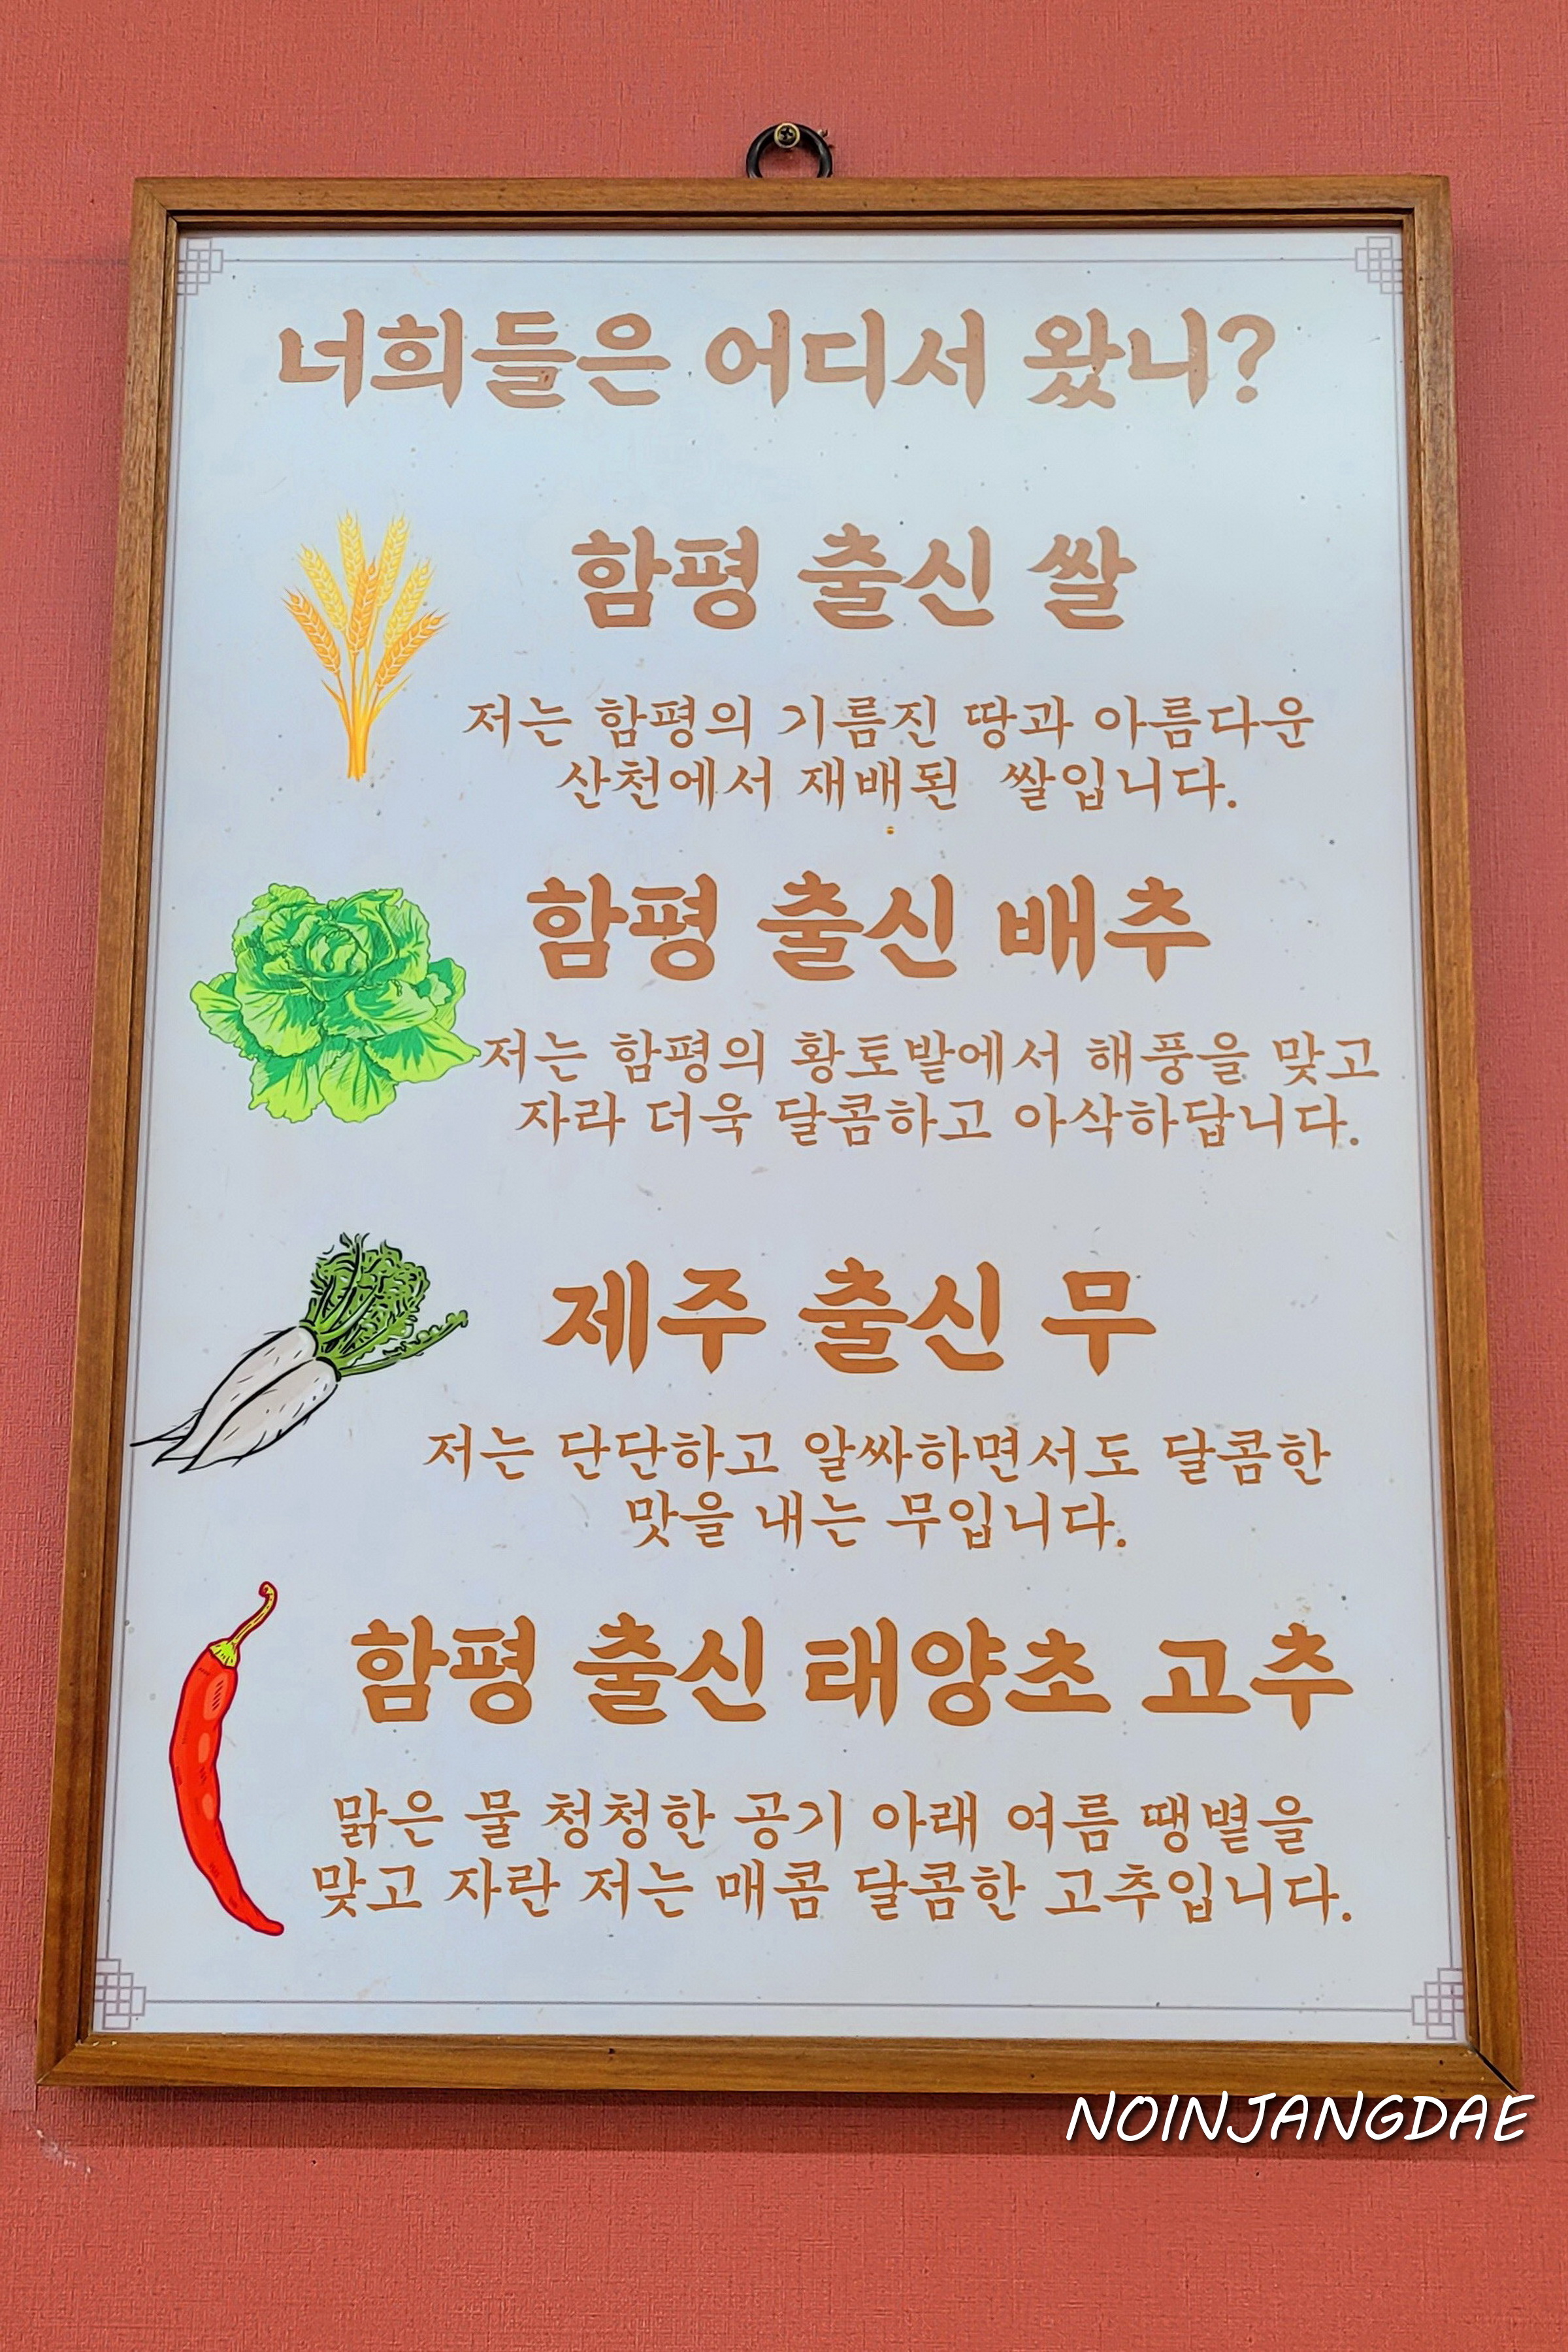 너희들은 어디서 왔니?
함평 출신 쌀
저는 함평의 기름진 땅과 아름다운
산천에서 재배된 쌀입니다.
함평 출신 배추
저는 함평의 황토밭에서 해풍을 맞고
자라 더욱 달콤하고 아삭하답니다.
제주 출신 무
저는 단단하고 알싸하면서도 달콤한
맛을 내는 무입니다.
함평 출신 태양초 고추
맑은 물 청청한 공기 아래 여름 땡볕을
맞고 자란 저는 매콤 달콤한 고추입니다.
NOINJANGDAE